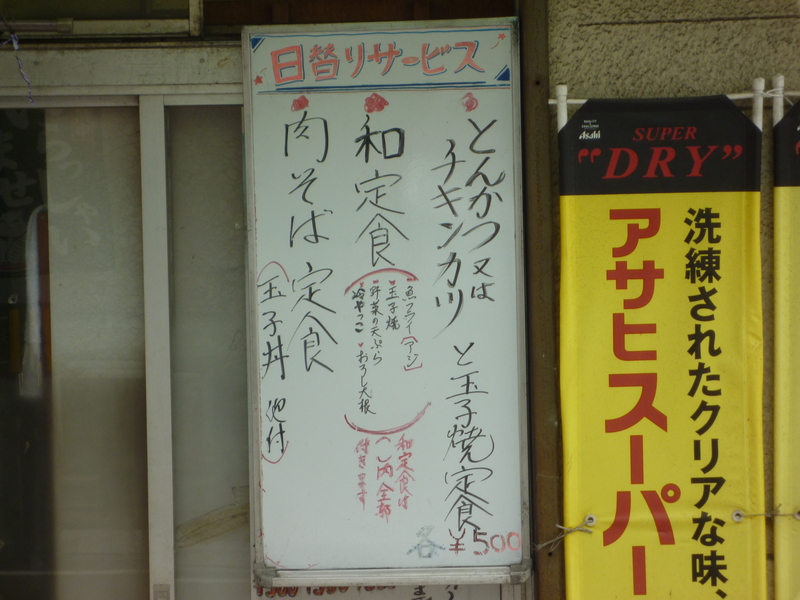 日替りサービス
とんかつ又は
チキンカツ
と玉子焼定食
各¥500
和定食
魚フライ(アジ)
玉子焼
野菜の天ぷら
おろし大根
冷やっこ
和定食は
( )内全部
付きます
肉そば定食
(玉子丼 他付)
Asahi
SUPER
"DRY"
洗練されたクリアな味、
アサヒスーパー